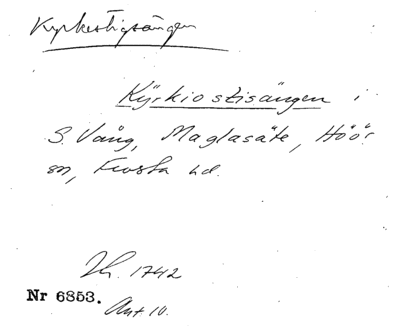 Kyrkestigsängen
Kÿrkiostisängen i
S. Vång, Maglasäte, Höör
sn, Frosta hd.
1742
Nr 6853.
Akt 10.